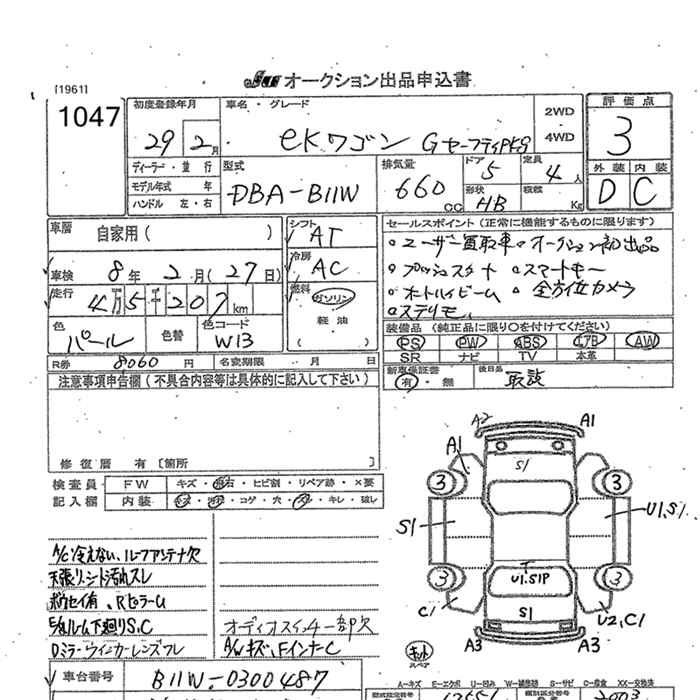 オークション出品申込書
[1961]
1047
初度登録年月
29 2月
車名・グレード
eKワゴン Gセーフティpkg
2WD
4WD
評価点
3
外装 内装
D C
ディーラー・並行
モデル年式 年
ハンドル 左・右
型式
DBA-B11W
排気量
660cc
ドア
5
形状
HB
定員
4人
積載
Kg
車歴
自家用( )
車検 8年 2月(27日)
走行
4万5千207km
色
パール
色替
色コード
W13
シフト
AT
冷房
AC
燃料
ガソリン
軽油
( )
セールスポイント(正常に機能するものに限ります)
○ユーザー買取車 ○オークション初出品
○プッシュスタート ○スマートキー
○オートハイビーム ○全方位カメラ
○ステリモ
装備品(純正品に限り○を付けてください)
PS PW ABS エアB AW
SR ナビ TV 本革
新車保証書
有・無
後日品
取説
R券 8060円
名変期限 月 日
注意事項申告欄(不具合内容等は具体的に記入して下さい)
修復歴 有 [箇所 ]
検査員
記入欄
FW キズ・飛石・ヒビ割・リペア跡・×要
内装 キズ・汚・コゲ・穴・スレ・キレ・破レ
A/C冷えない、ルーフアンテナ欠
天張り、シート汚れスレ
Rピラーム
下廻りS,C
Dミラーウィンカーレンズフレ
オーディオスイッチ一部欠
A/Wキズ、FインナーC
A2 A1
A1
S1
3 3
S1
U1,S1
U1.S1P
3 3
C1
S1
U2,C1
A3 A3
スペア
A=キズ E=エクボ U=凹み W=補修跡 S=サビ C=腐食 XX=交換済
車台番号
B11W-0300487
型式指定番号
類別区分番号